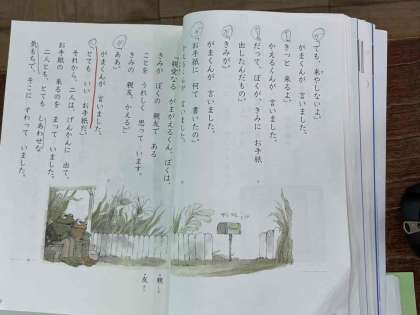 「でも、来やしないよ。」
がまくんが 言いました。
「きっと 来るよ。」
かえるくんが 言いました。
「だって、ぼくが、きみに お手紙
出したんだもの。」
「きみが。」
がまくんが 言いました。
「お手紙に 何て 書いたの。」
『親愛なる がまがえるくん。ぼくは、
きみが ぼくの 親友で ある
ことを うれしく 思って います。
きみの 親友、かえる。』」
「ああ。」
がまくんが 言いました。
「とても いい お手紙だ。」
それから、二人は、げんかんに 出て、
お手紙の 来るのを まって いました。
二人とも、とても しあわせな
気もちで、そこに すわって いました。
・親
・友